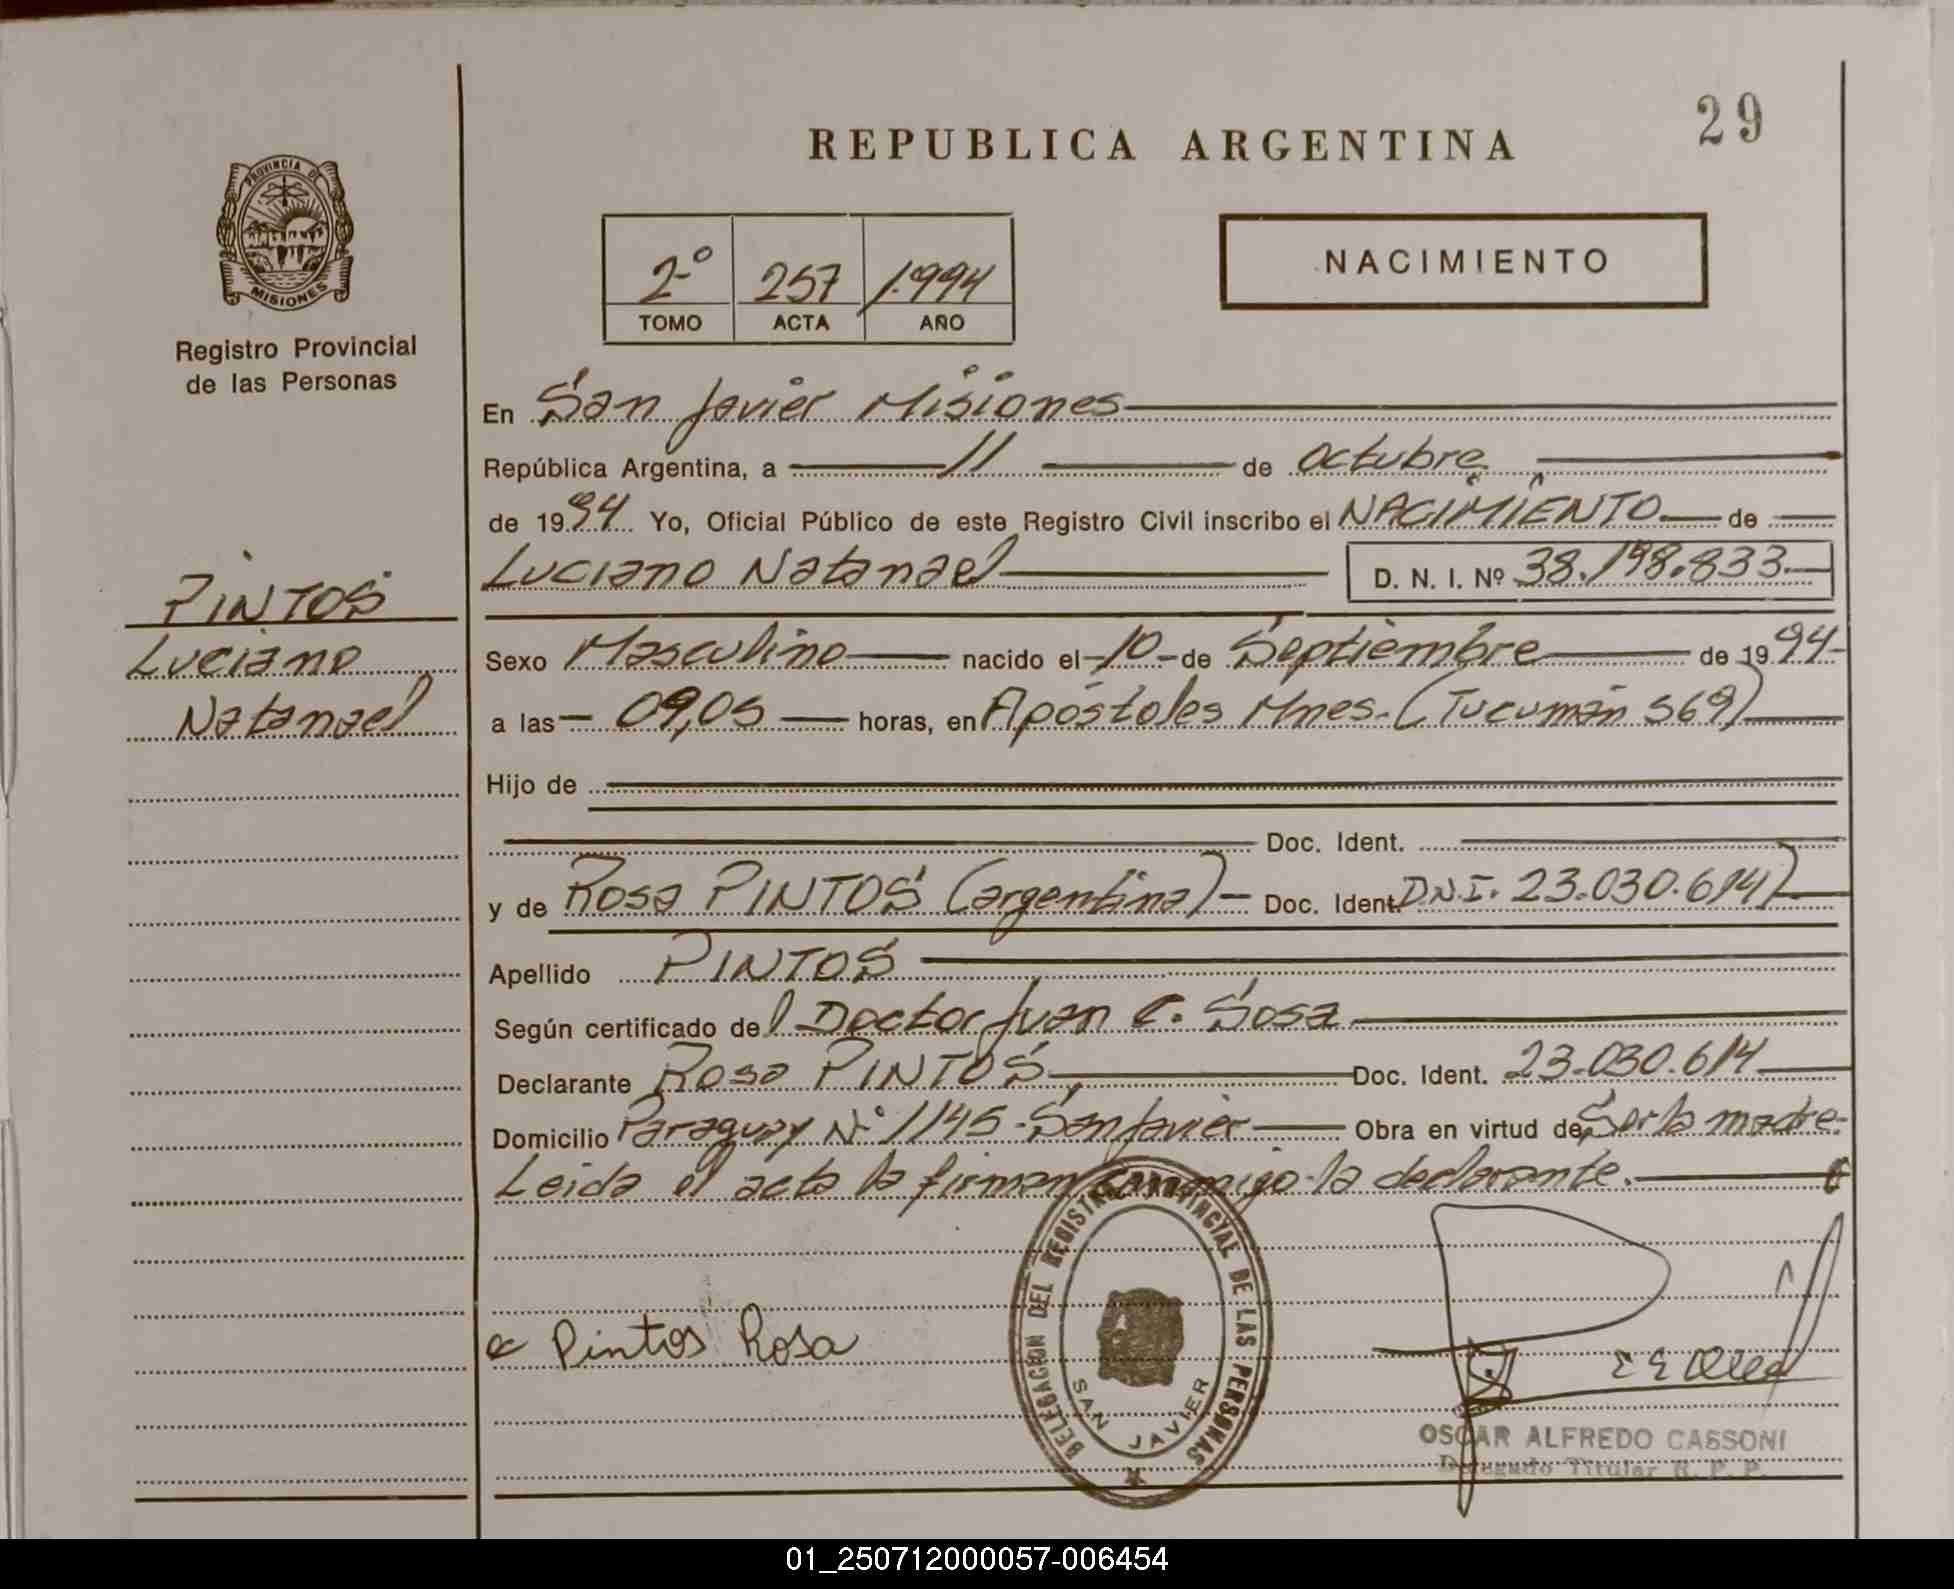 29
REPUBLICA ARGENTINA
PROVINCIA DE
MISIONES
Registro Provincial
de las Personas
2º 257 1.994
TOMO ACTA AÑO
NACIMIENTO
En San Javier Misiones
República Argentina, a 11 de octubre
de 1994 Yo, Oficial Público de este Registro Civil inscribo el NACIMIENTO de
Luciano Natanael D. N. I. Nº 38.198.833.
PINTOS
Luciano
Natanael
Sexo Masculino nacido el 10 de Septiembre de 1994
a las 09,05 horas, en Apóstoles Mnes. (Tucumán 569)
Hijo de
Doc. Ident.
y de Rosa PINTOS (argentina) Doc. Ident. D.N.I. 23.030.614)
Apellido PINTOS
Según certificado del Doctor Juan C. Sosa
Declarante Rosa PINTOS Doc. Ident. 23.030.614
Domicilio Paraguay Nº 1145 - San Javier Obra en virtud de Ser la madre.
Leida el acta la firman conmigo la declarante.
Pintos Rosa
DELEGACION DEL REGISTRO PROVINCIAL DE LAS PERSONAS
SAN JAVIER
OSCAR ALFREDO CASSONI
Delegado Titular R. P. P.
01_250712000057-006454